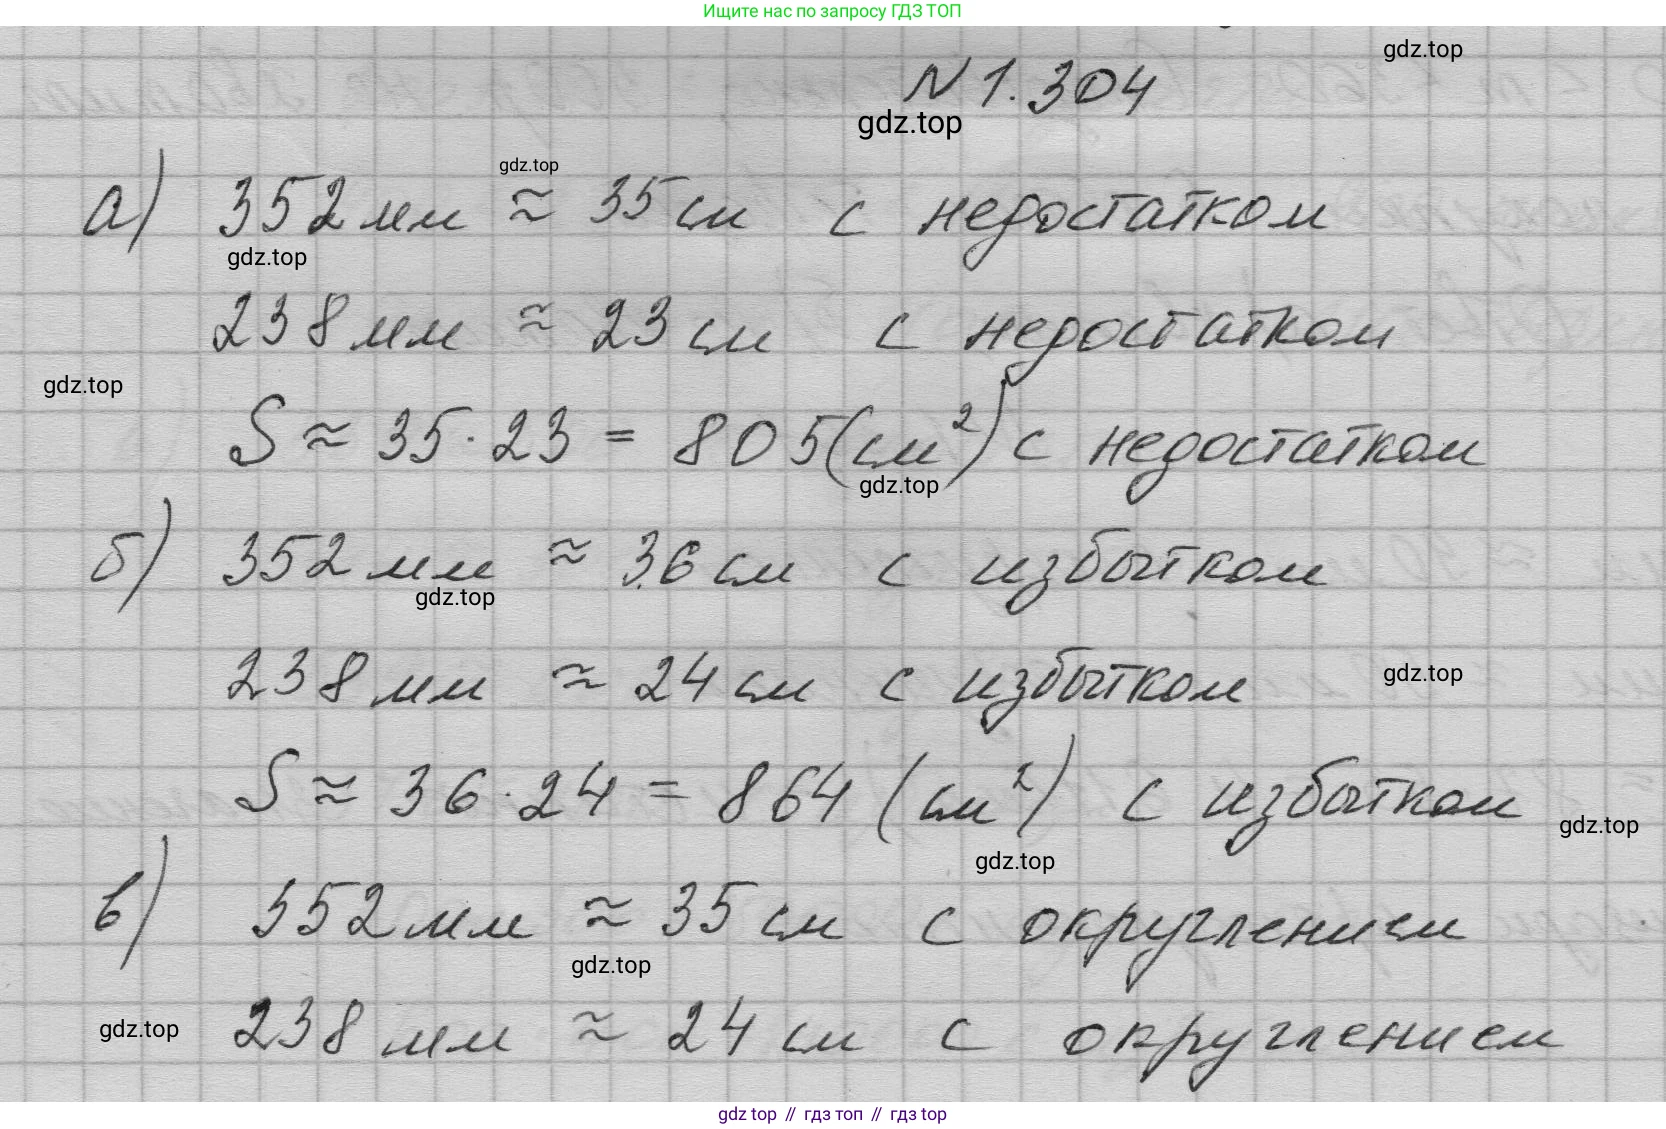 Ищите нас по запросу ГДЗ ТОП
gdz.top
N 1.304
gdz.top
gdz.top
а) 352 мм ≈ 35 см с недостатком
gdz.top
238 мм ≈ 23 см с недостатком
gdz.top
S ≈ 35 · 23 = 805 (см²) с недостатком
gdz.top
б) 352 мм ≈ 36 см с избытком
gdz.top
238 мм ≈ 24 см с избытком
gdz.top
S ≈ 36 · 24 = 864 (см²) с избытком
gdz.top
gdz.top
в) 352 мм ≈ 35 см с округлением
gdz.top
gdz.top
238 мм ≈ 24 см с округлением
gdz top // гдз топ // гдз top